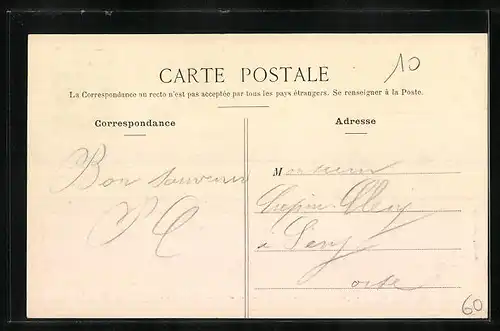 10
CARTE POSTALE
La Correspondance au recto n'est pas acceptée par tous les pays étrangers. Se renseigner à la Poste.
Correspondance
Adresse
Bon souvenir
Monsieur
à
oise
60